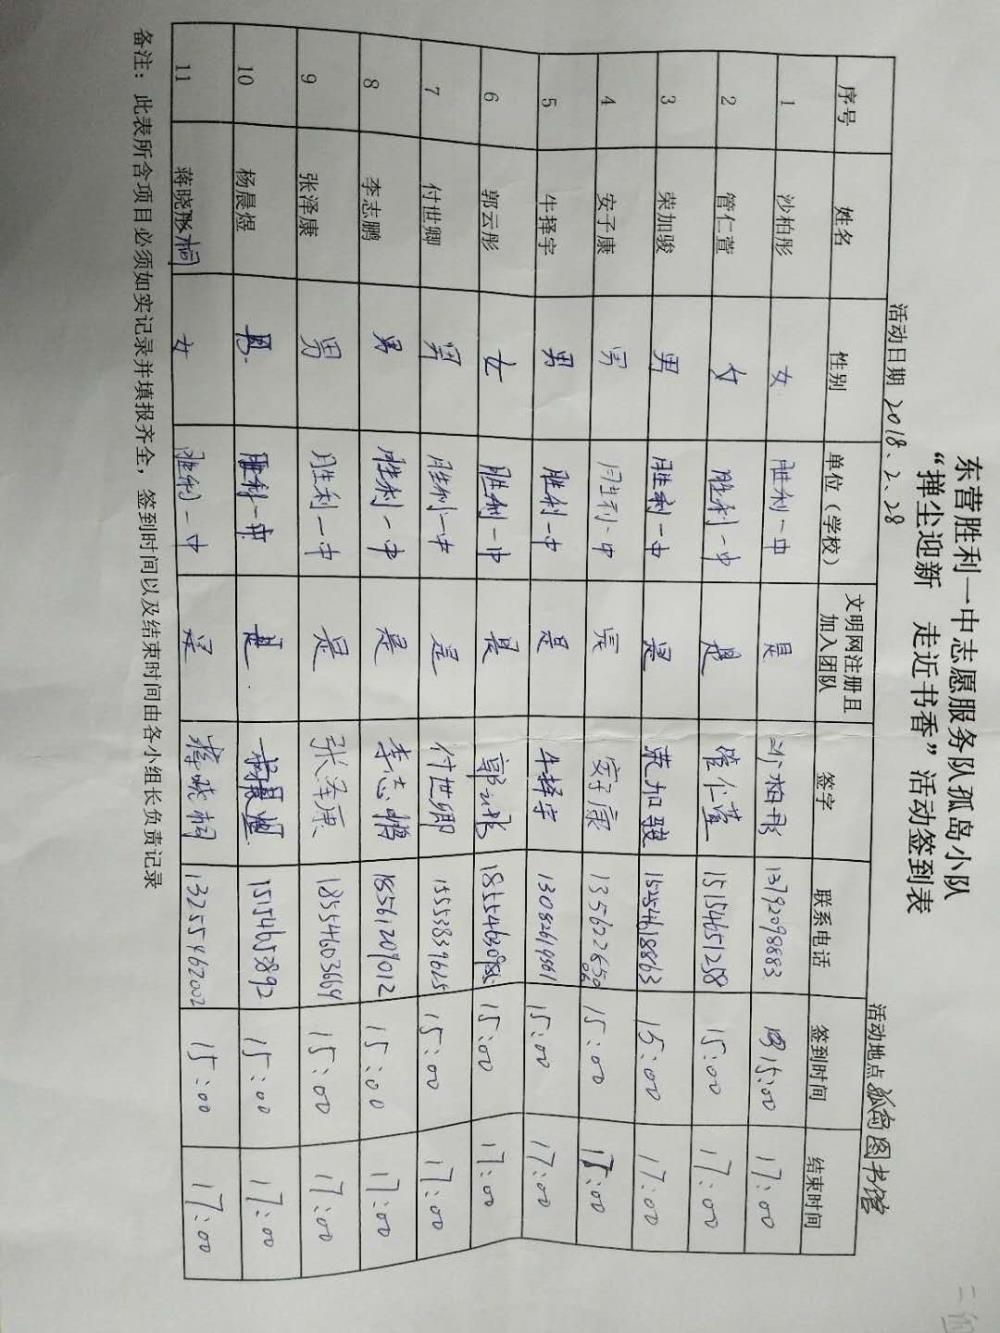 东营胜利一中志愿服务队孤岛小队
“掸尘迎新 走近书香”活动签到表
活动日期 2018.2.28 活动地点 孤岛图书馆
序号 姓名 性别 单位（学校） 文明网注册且加入团队 签字 联系电话 签到时间 结束时间
1 沙柏彤 女 胜利一中 是 沙柏彤 13792098883 15:00 17:00
2 管仁萱 女 胜利一中 是 管仁萱 15154651258 15:00 17:00
3 荣加骏 男 胜利一中 是 荣加骏 15254618863 15:00 17:00
4 安子康 男 胜利一中 是 安子康 15:00 17:00
5 牛择宇 男 胜利一中 是 牛择宇 13082619561 15:00 17:00
6 郭云彤 女 胜利一中 是 郭云彤 15:00 17:00
7 付世卿 男 胜利一中 是 付世卿 15553839615 15:00 17:00
8 李志鹏 男 胜利一中 是 李志鹏 18561209012 15:00 17:00
9 张泽康 男 胜利一中 是 张泽康 18554603669 15:00 17:00
10 杨晨煜 男 胜利一中 是 杨晨煜 15154653892 15:00 17:00
11 蒋晓桐 女 胜利一中 是 蒋晓桐 13255462002 15:00 17:00
备注：此表所含项目必须如实记录并填报齐全，签到时间以及结束时间由各小组长负责记录